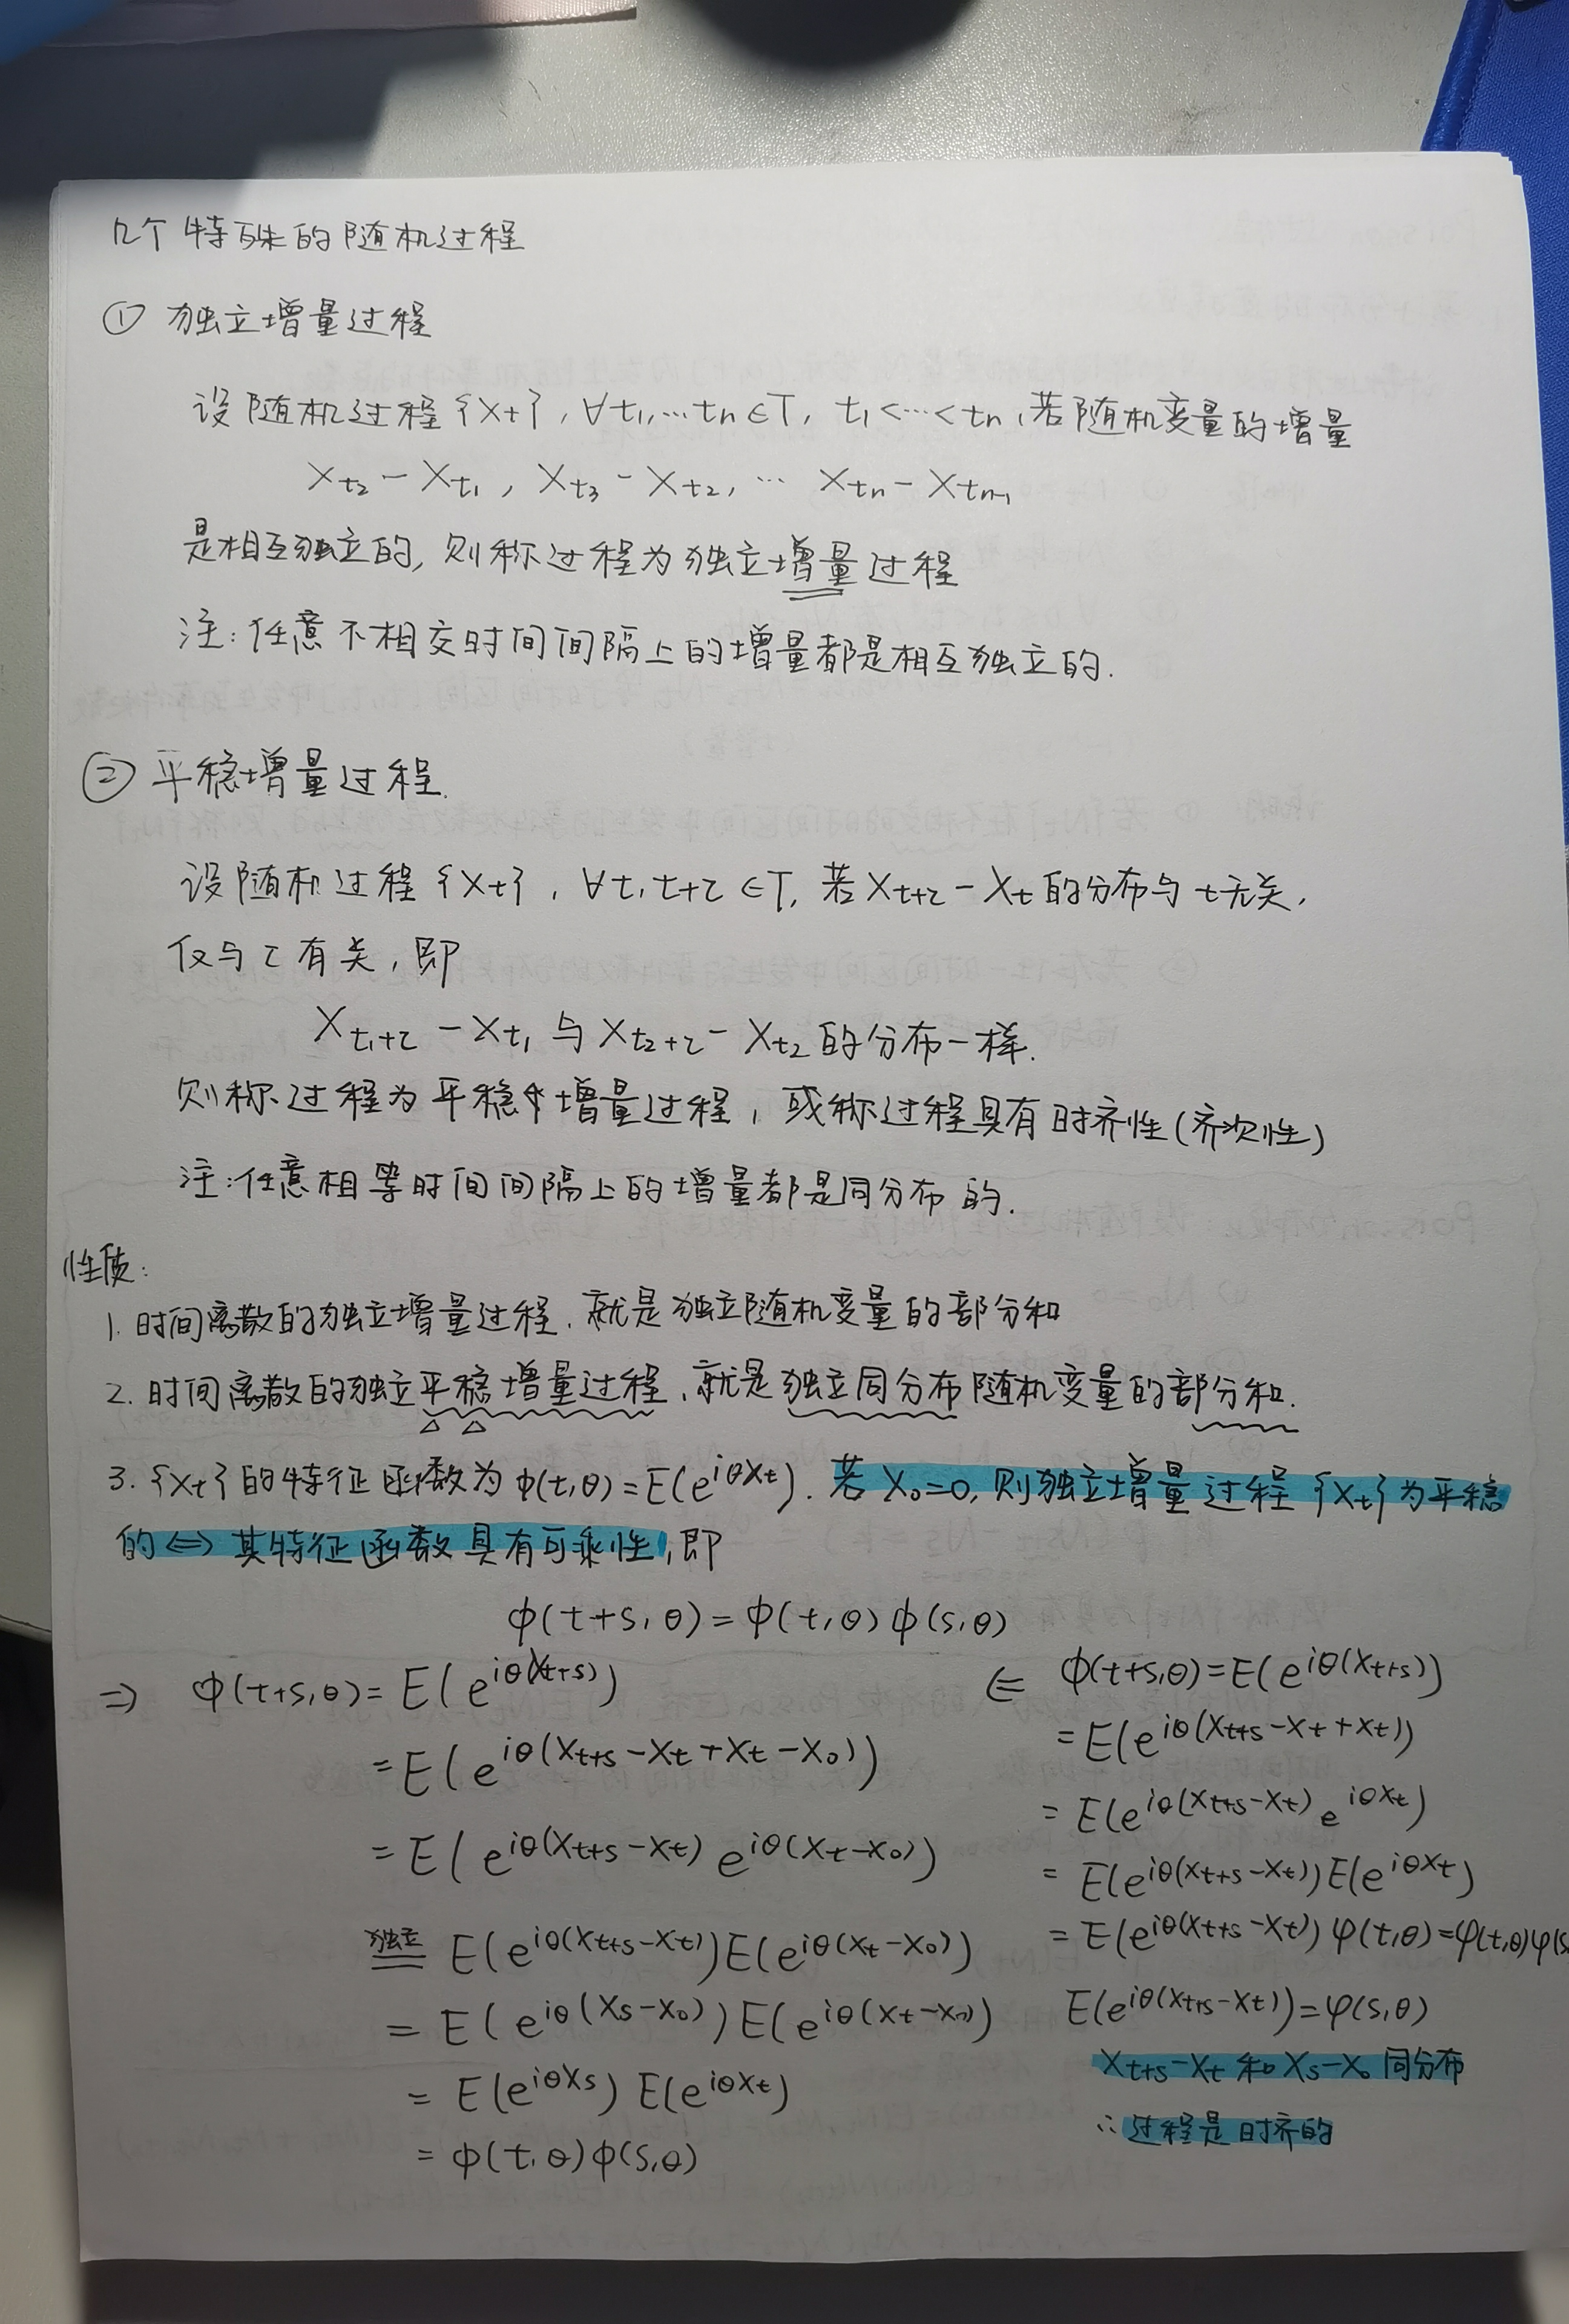 几个特殊的随机过程
① 独立增量过程
设随机过程{Xt}, ∀t1,…tn∈T, t1<…<tn, 若随机变量的增量
Xt2 - Xt1, Xt3 - Xt2, … Xtn - Xtn-1
是相互独立的, 则称过程为独立增量过程
注: 任意不相交时间间隔上的增量都是相互独立的.
② 平稳增量过程.
设随机过程{Xt}, ∀t, t+τ∈T, 若Xt+τ - Xt的分布与t无关,
仅与τ有关, 即
Xt1+τ - Xt1 与 Xt2+τ - Xt2 的分布一样.
则称过程为平稳增量过程, 或称过程具有时齐性(齐次性)
注: 任意相等时间间隔上的增量都是同分布的.
性质:
1. 时间离散的独立增量过程, 就是独立随机变量的部分和
2. 时间离散的独立平稳增量过程, 就是独立同分布随机变量的部分和.
3. {Xt}的特征函数为φ(t,θ)=E(e^{iθXt}). 若X0=0, 则独立增量过程{Xt}为平稳
的⇔其特征函数具有可乘性, 即
φ(t+s,θ)=φ(t,θ)φ(s,θ)
⇒ φ(t+s,θ)=E(e^{iθ(Xt+s)})
=E(e^{iθ(Xt+s-Xt+Xt-X0)})
=E(e^{iθ(Xt+s-Xt)} e^{iθ(Xt-X0)})
独立
== E(e^{iθ(Xt+s-Xt)})E(e^{iθ(Xt-X0)})
=E(e^{iθ(Xs-X0)})E(e^{iθ(Xt-X0)})
=E(e^{iθXs})E(e^{iθXt})
=φ(t,θ)φ(s,θ)
⇐ φ(t+s,θ)=E(e^{iθ(Xt+s)})
=E(e^{iθ(Xt+s-Xt+Xt)})
=E(e^{iθ(Xt+s-Xt)} e^{iθXt})
=E(e^{iθ(Xt+s-Xt)})E(e^{iθXt})
=E(e^{iθ(Xt+s-Xt)})φ(t,θ)=φ(t,θ)φ(s
E(e^{iθ(Xt+s-Xt)})=φ(s,θ)
Xt+s-Xt 和 Xs-X0 同分布
∴ 过程是时齐的